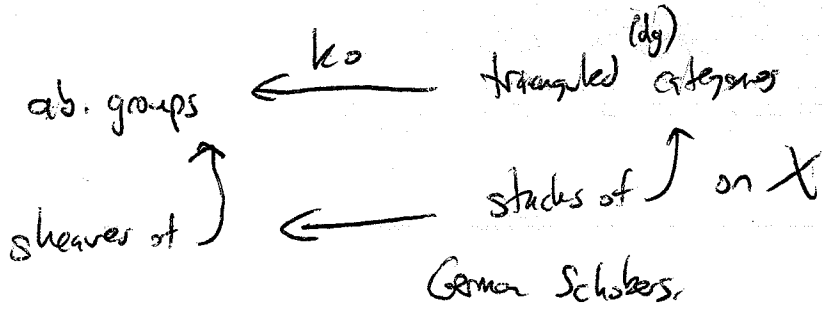 (dg)
K₀
ab. groups triangulated categories
sheaves of stacks of on X
German Schobers.